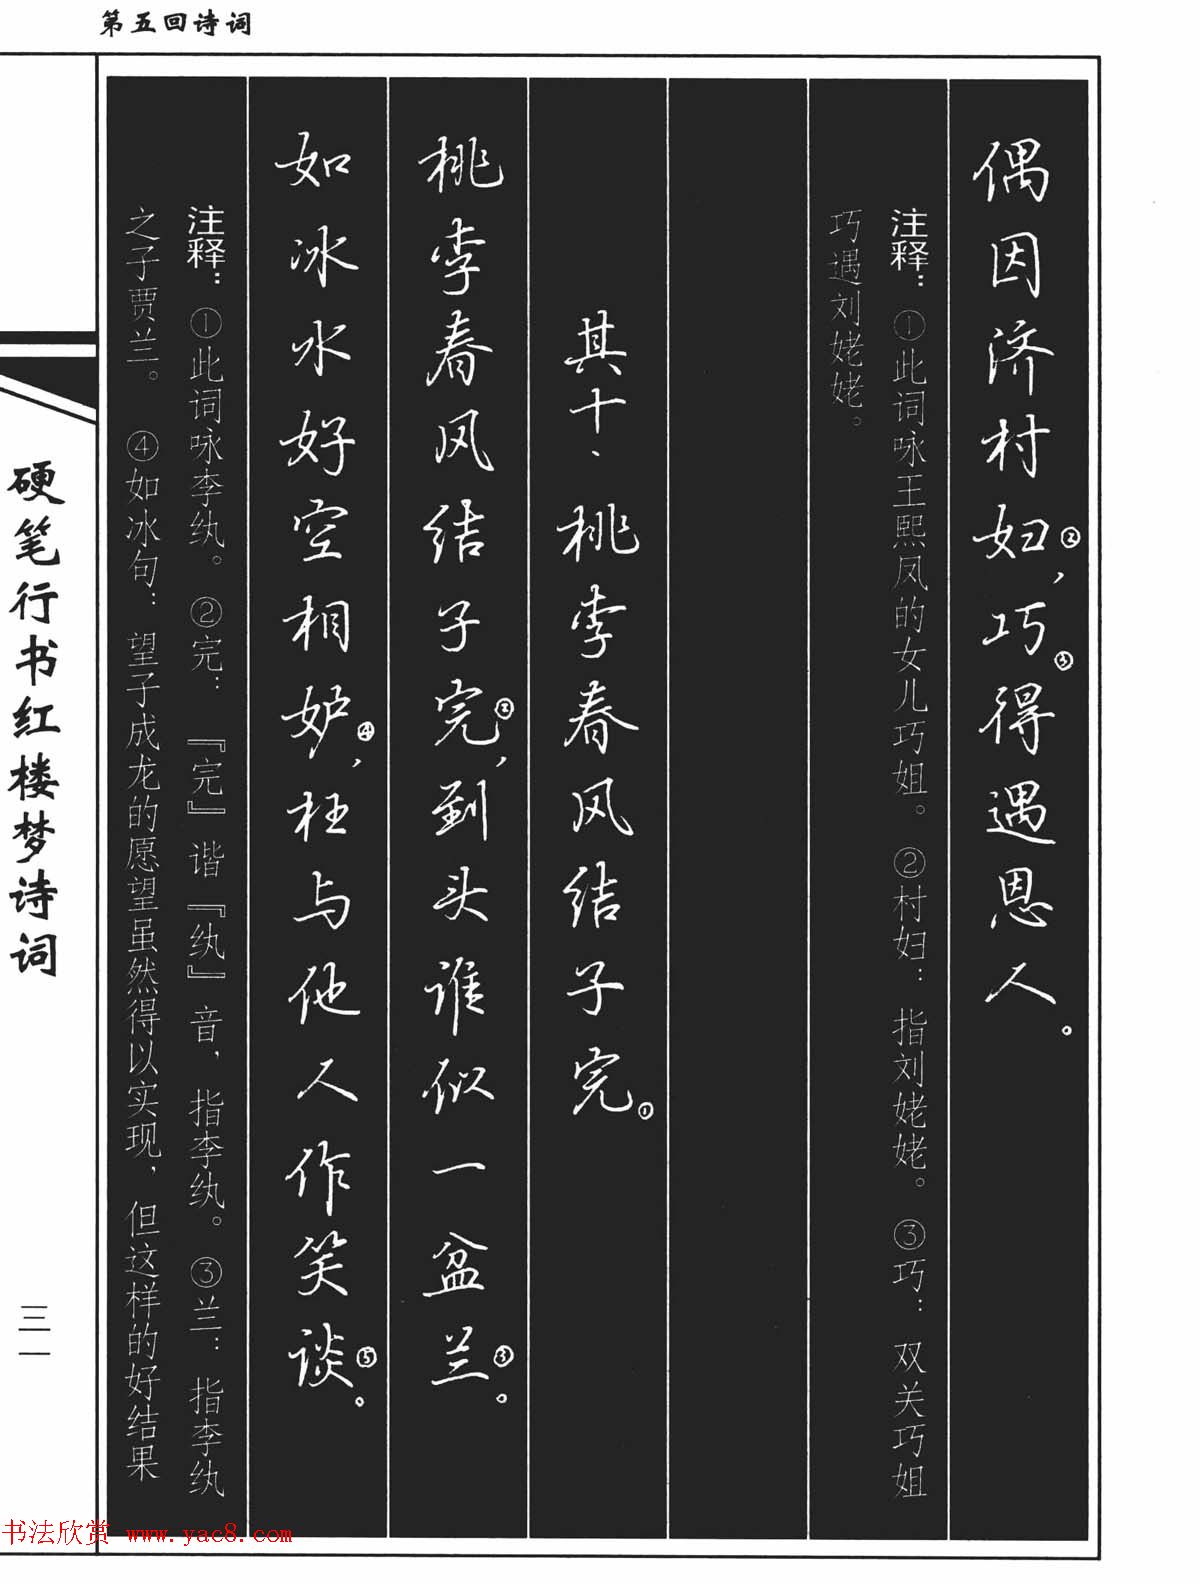 第五回诗词
偶因济村妇②，巧③得遇恩人。
注释：①此词咏王熙凤的女儿巧姐。②村妇：指刘姥姥。③巧：双关巧姐
巧遇刘姥姥。
其十·桃李春风结子完①
桃李春风结子完②，到头谁似一盆兰③。
如冰水好空相妒④，枉与他人作笑谈⑤。
注释：①此词咏李纨。②完：『完』谐『纨』音，指李纨。③兰：指李纨
之子贾兰。④如冰句：望子成龙的愿望虽然得以实现，但这样的好结果
硬笔行书红楼梦诗词
三一
书法欣赏 www.yac8.com